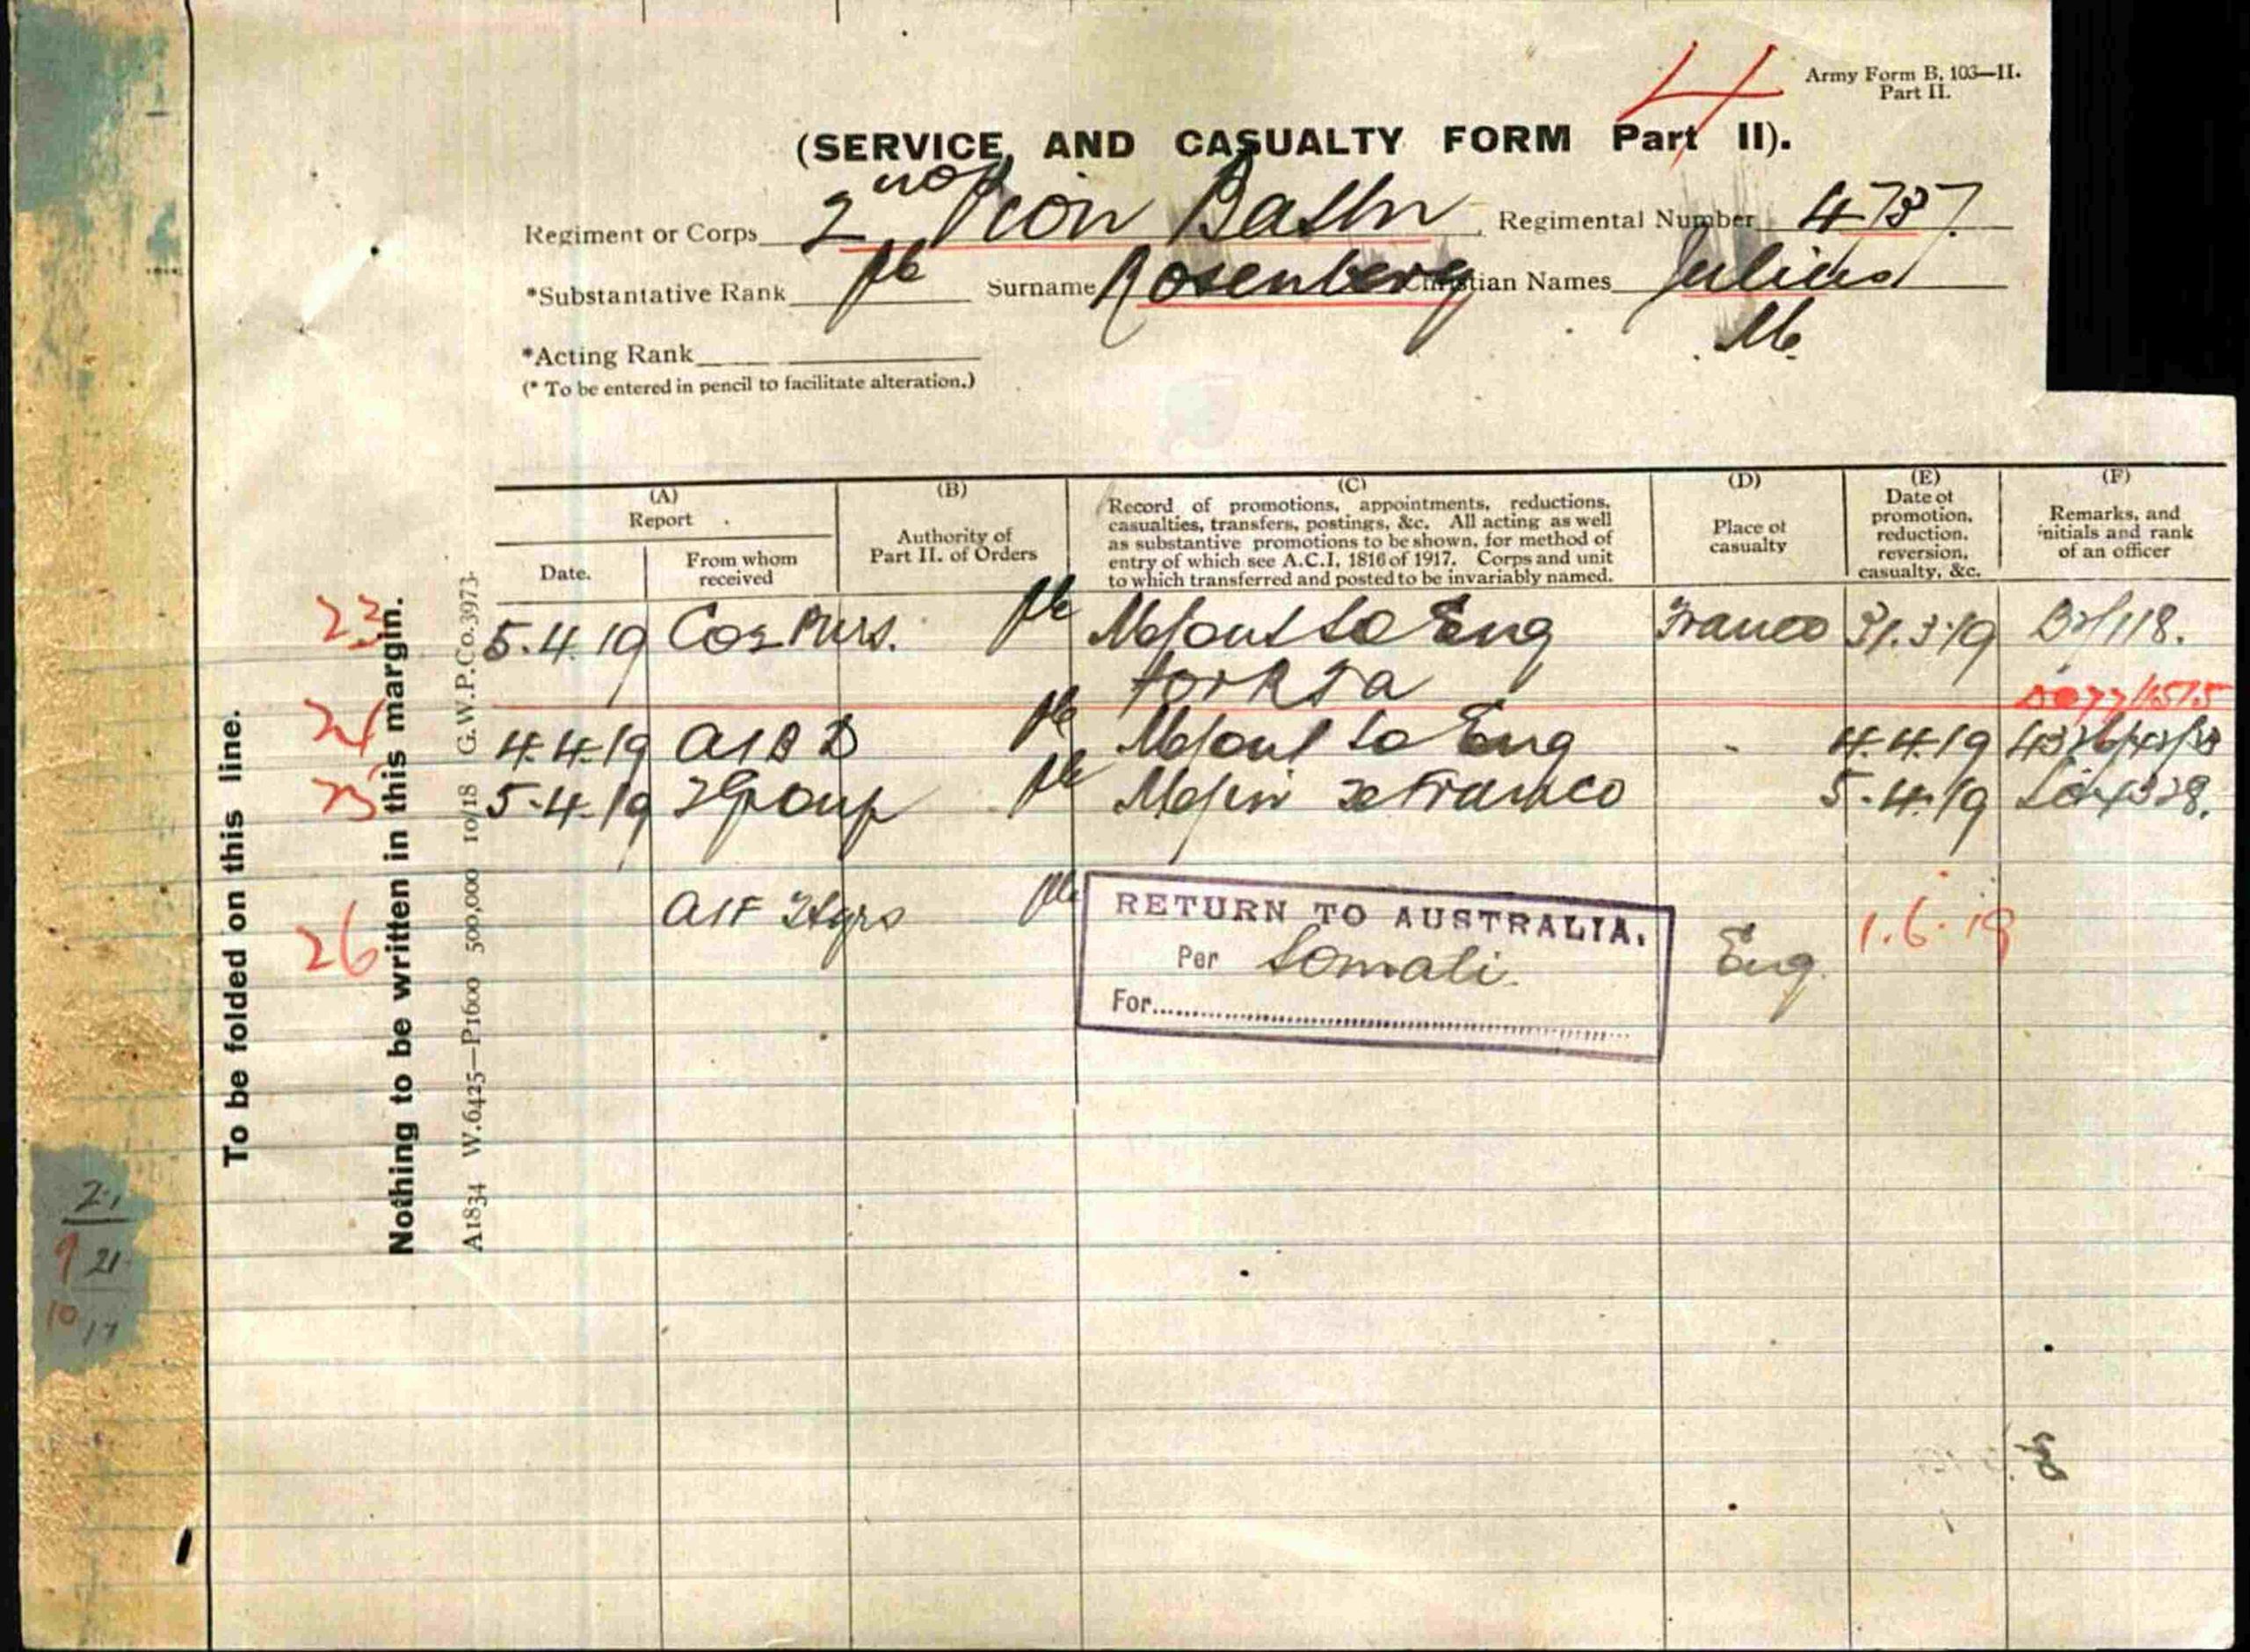 Army Form B. 103—II.
Part II.
4
(SERVICE AND CASUALTY FORM Part II).
Regiment or Corps 2nd Pion Battn Regimental Number 4737.
*Substantative Rank Pte Surname Rosenberg Christian Names Julius
M.
*Acting Rank
(* To be entered in pencil to facilitate alteration.)
(A) (B) (C) (D) (E) (F)
Report
Date. From whom received
Authority of Part II. of Orders
Record of promotions, appointments, reductions,
casualties, transfers, postings, &c. All acting as well
as substantive promotions to be shown, for method of
entry of which see A.C.I. 1816 of 1917. Corps and unit
to which transferred and posted to be invariably named.
Place of casualty
Date of promotion, reduction, reversion, casualty, &c.
Remarks, and initials and rank of an officer
23 5.4.19 Pte M/out to Eng France 31.3.19
for R T A
4.4.19 A I B D Pte M/out to Eng 4.4.19
5.4.19 Group Pte M/in France 5.4.19
26 AIF Hqrs Pte RETURN TO AUSTRALIA. Eng. 1.6.19
Per Somali.
For
To be folded on this line.
Nothing to be written in this margin.
A1834 W.6425—P1600 500,000 10/18 G.W.P.Co.3973.
21
9 21
10 17